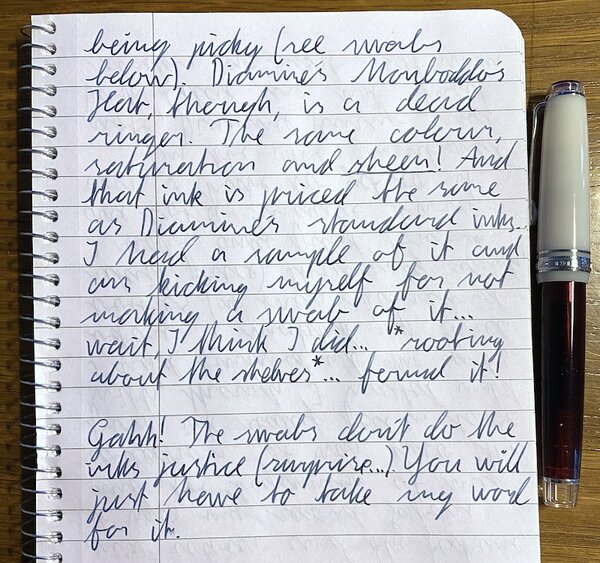 being picky (see swabs
below). Diamine's Monboddo's
Hat, though, is a dead
ringer. The same colour,
saturation and sheen! And
that ink is priced the same
as Diamine's standard inks...
I had a sample of it and
am kicking myself for not
making a swab of it...
wait, I think I did... *rooting
about the shelves*... found it!
Gahh! The swabs don't do the
inks justice (surprise...). You will
just have to take my word
for it.